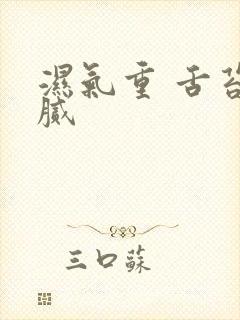 濕氣重 舌苔
膩
三口蘇